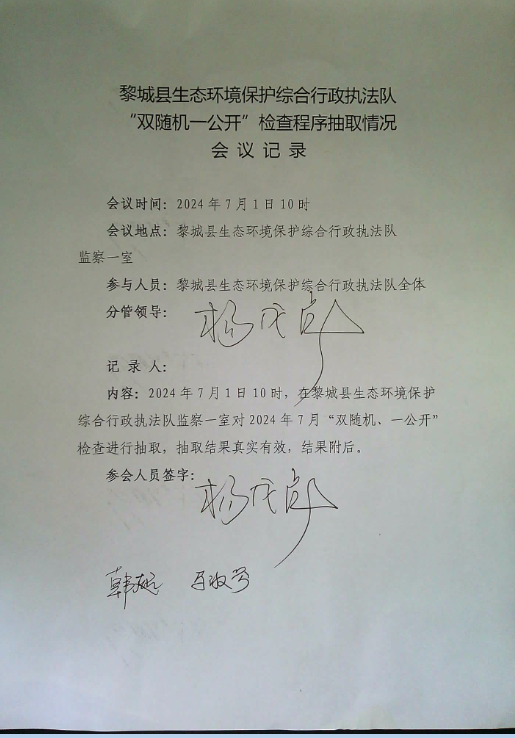 黎城县生态环境保护综合行政执法队
“双随机一公开”检查程序抽取情况
会 议 记 录
会议时间：2024年7月1日10时
会议地点：黎城县生态环境保护综合行政执法队
监察一室
参与人员：黎城县生态环境保护综合行政执法队全体
分管领导：
记 录 人：
内容：2024年7月1日10时，在黎城县生态环境保护
综合行政执法队监察一室对2024年7月“双随机、一公开”
检查进行抽取，抽取结果真实有效，结果附后。
参会人员签字：